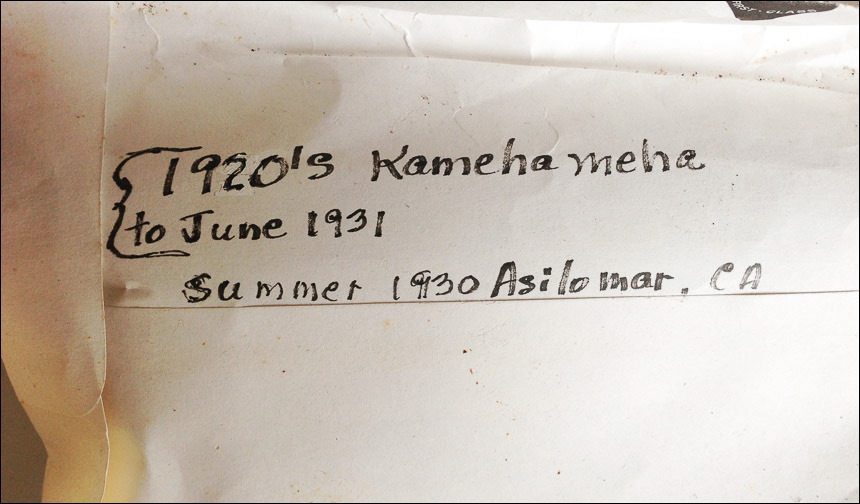 FIRST-CLASS
1920's Kamehameha
to June 1931
Summer 1930 Asilomar, CA